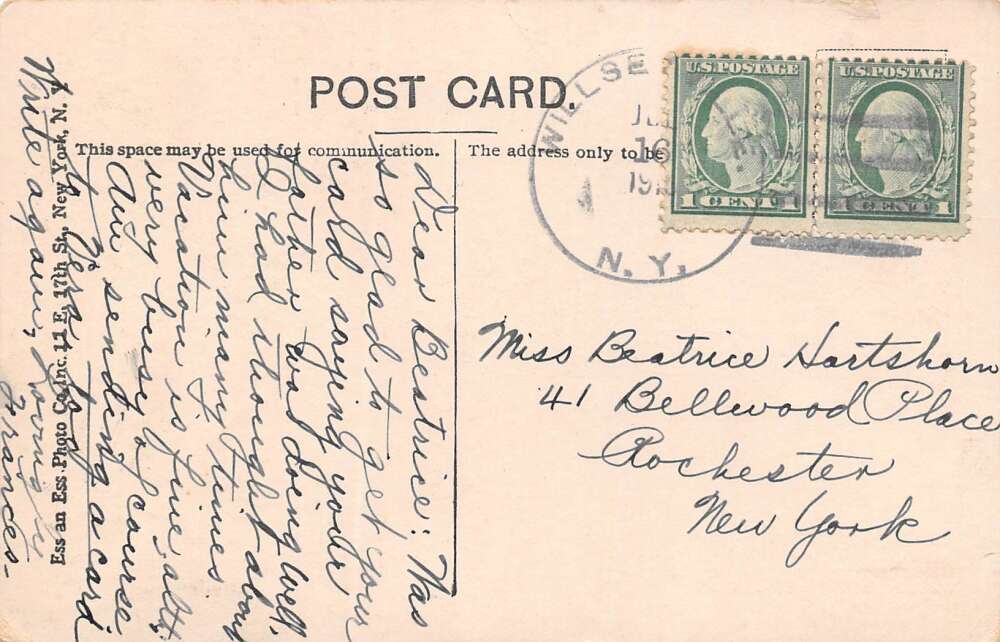 POST CARD.
This space may be used for communication.
The address only to be
WILLSE
16
191
N. Y.
U.S. POSTAGE
1 CENT 1
U.S. POSTAGE
1 CENT 1
Miss Beatrice Hartshorn
41 Bellwood Place
Rochester
New York
Dear Beatrice: Was
so glad to get your
card saying your
father was doing well.
I had thought about
him many times
Vacation is fine altho
very busy of course
Am sending a card
to
Write again, yours
Frances-
Ess an Ess Photo Co. Inc. 11 E. 17th St., New York, N. Y.